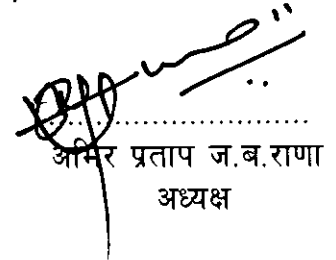 अमिर प्रताप ज.ब.राणा
अध्यक्ष